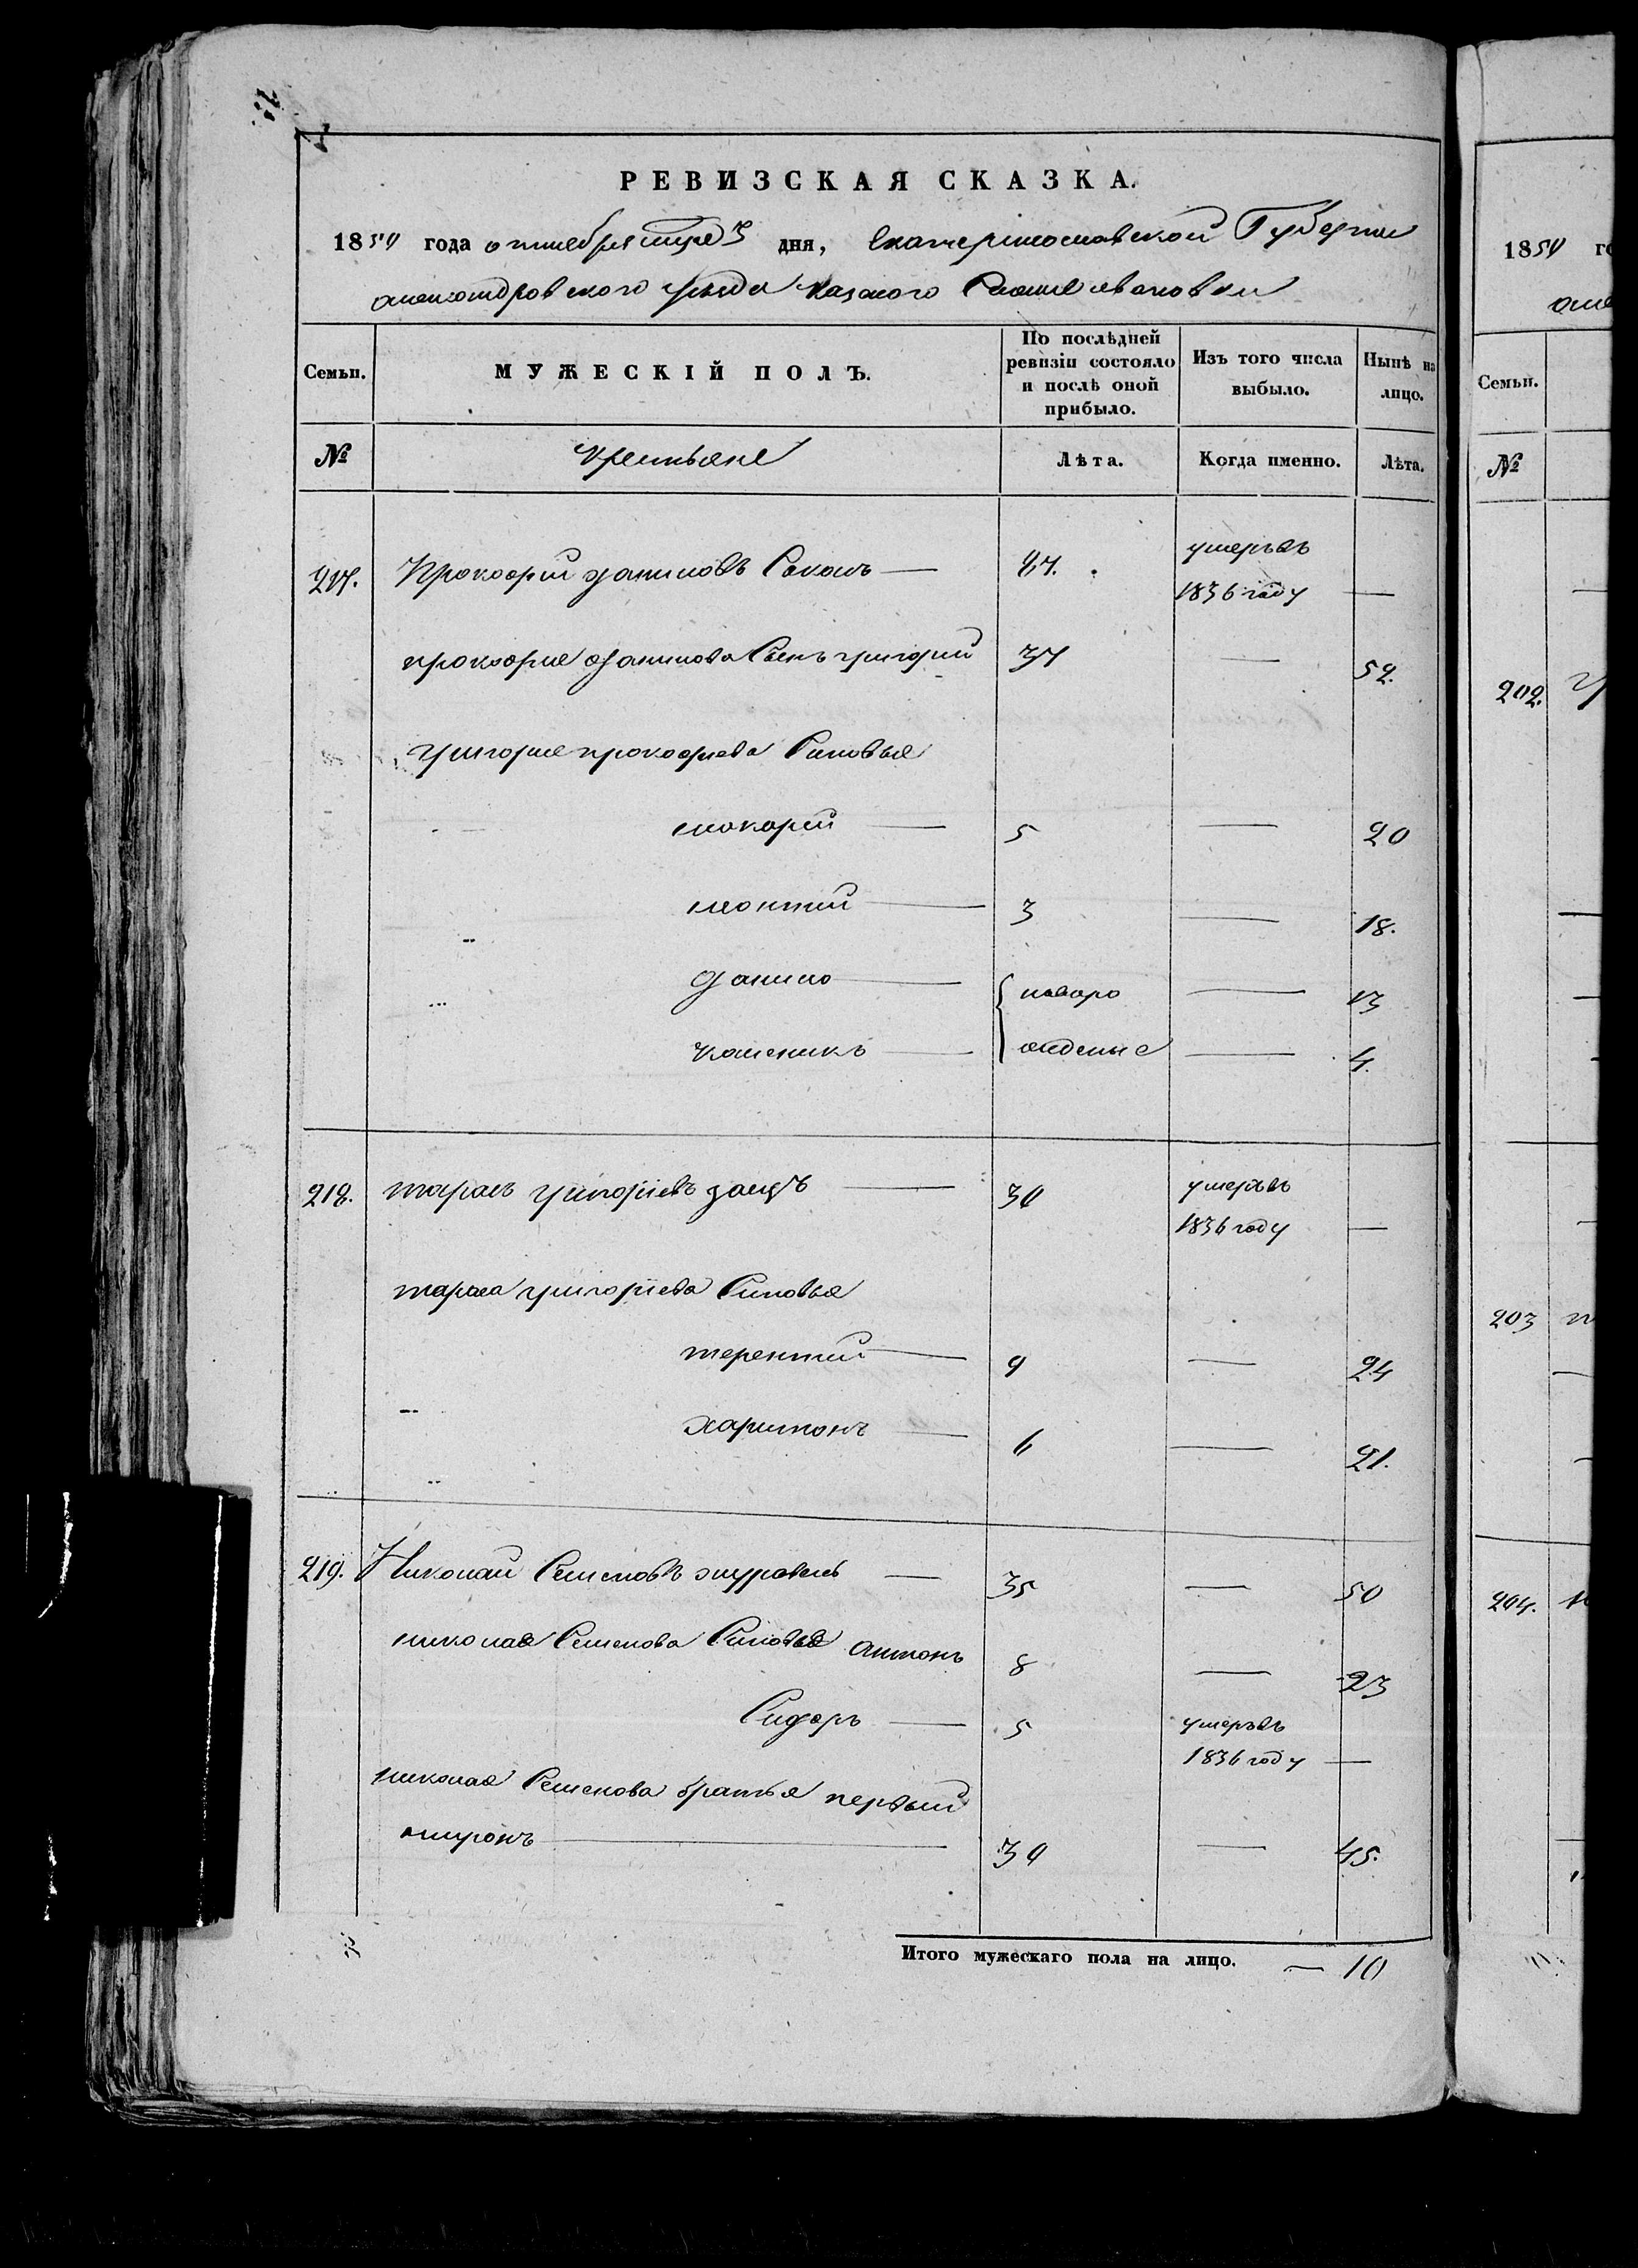 РЕВИЗСКАЯ СКАЗКА.
1850 года октября дня, Екатеринославской Губернии
александровского уезда казаного Ивановки
Семьи. МУЖЕСКІЙ ПОЛЪ. По послѣдней ревизіи состояло и послѣ оной прибыло. Изъ того числа выбыло. Нынѣ на лицо.
№ Крестьяне Лѣта. Когда именно. Лѣта.
217. Прокофий даниловъ — 47. умеръ въ 1836 году —
прокофия данилова Сынъ григорий 37 — 52.
григория прокофиева Синовья
макарий — 5 — 20
леонтий — 3 — 18.
данило — новоро — 13
каленикъ — жденые — 4.
218. тарасъ григориевъ заецъ — 30 умеръ въ 1836 году —
тараса григориева Синовья
терентий — 9 — 24
харитонъ — 6 — 21.
219. Николай Семеновъ журавель — 35 — 50
николая Семенова Синовья антонъ 8 — 23
Сидоръ — 5 умеръ въ 1836 году —
николая Семенова братья первый
миронъ — 30 — 45.
Итого мужескаго пола на лицо. — 10
1850 го
Семьи.
№
202.
203
204.